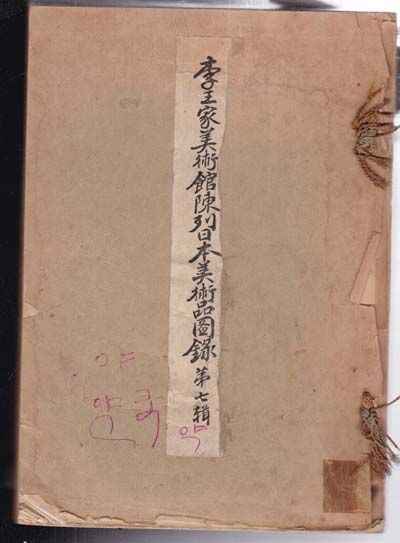 李王家美術館陳列日本美術品圖錄 第七輯
약